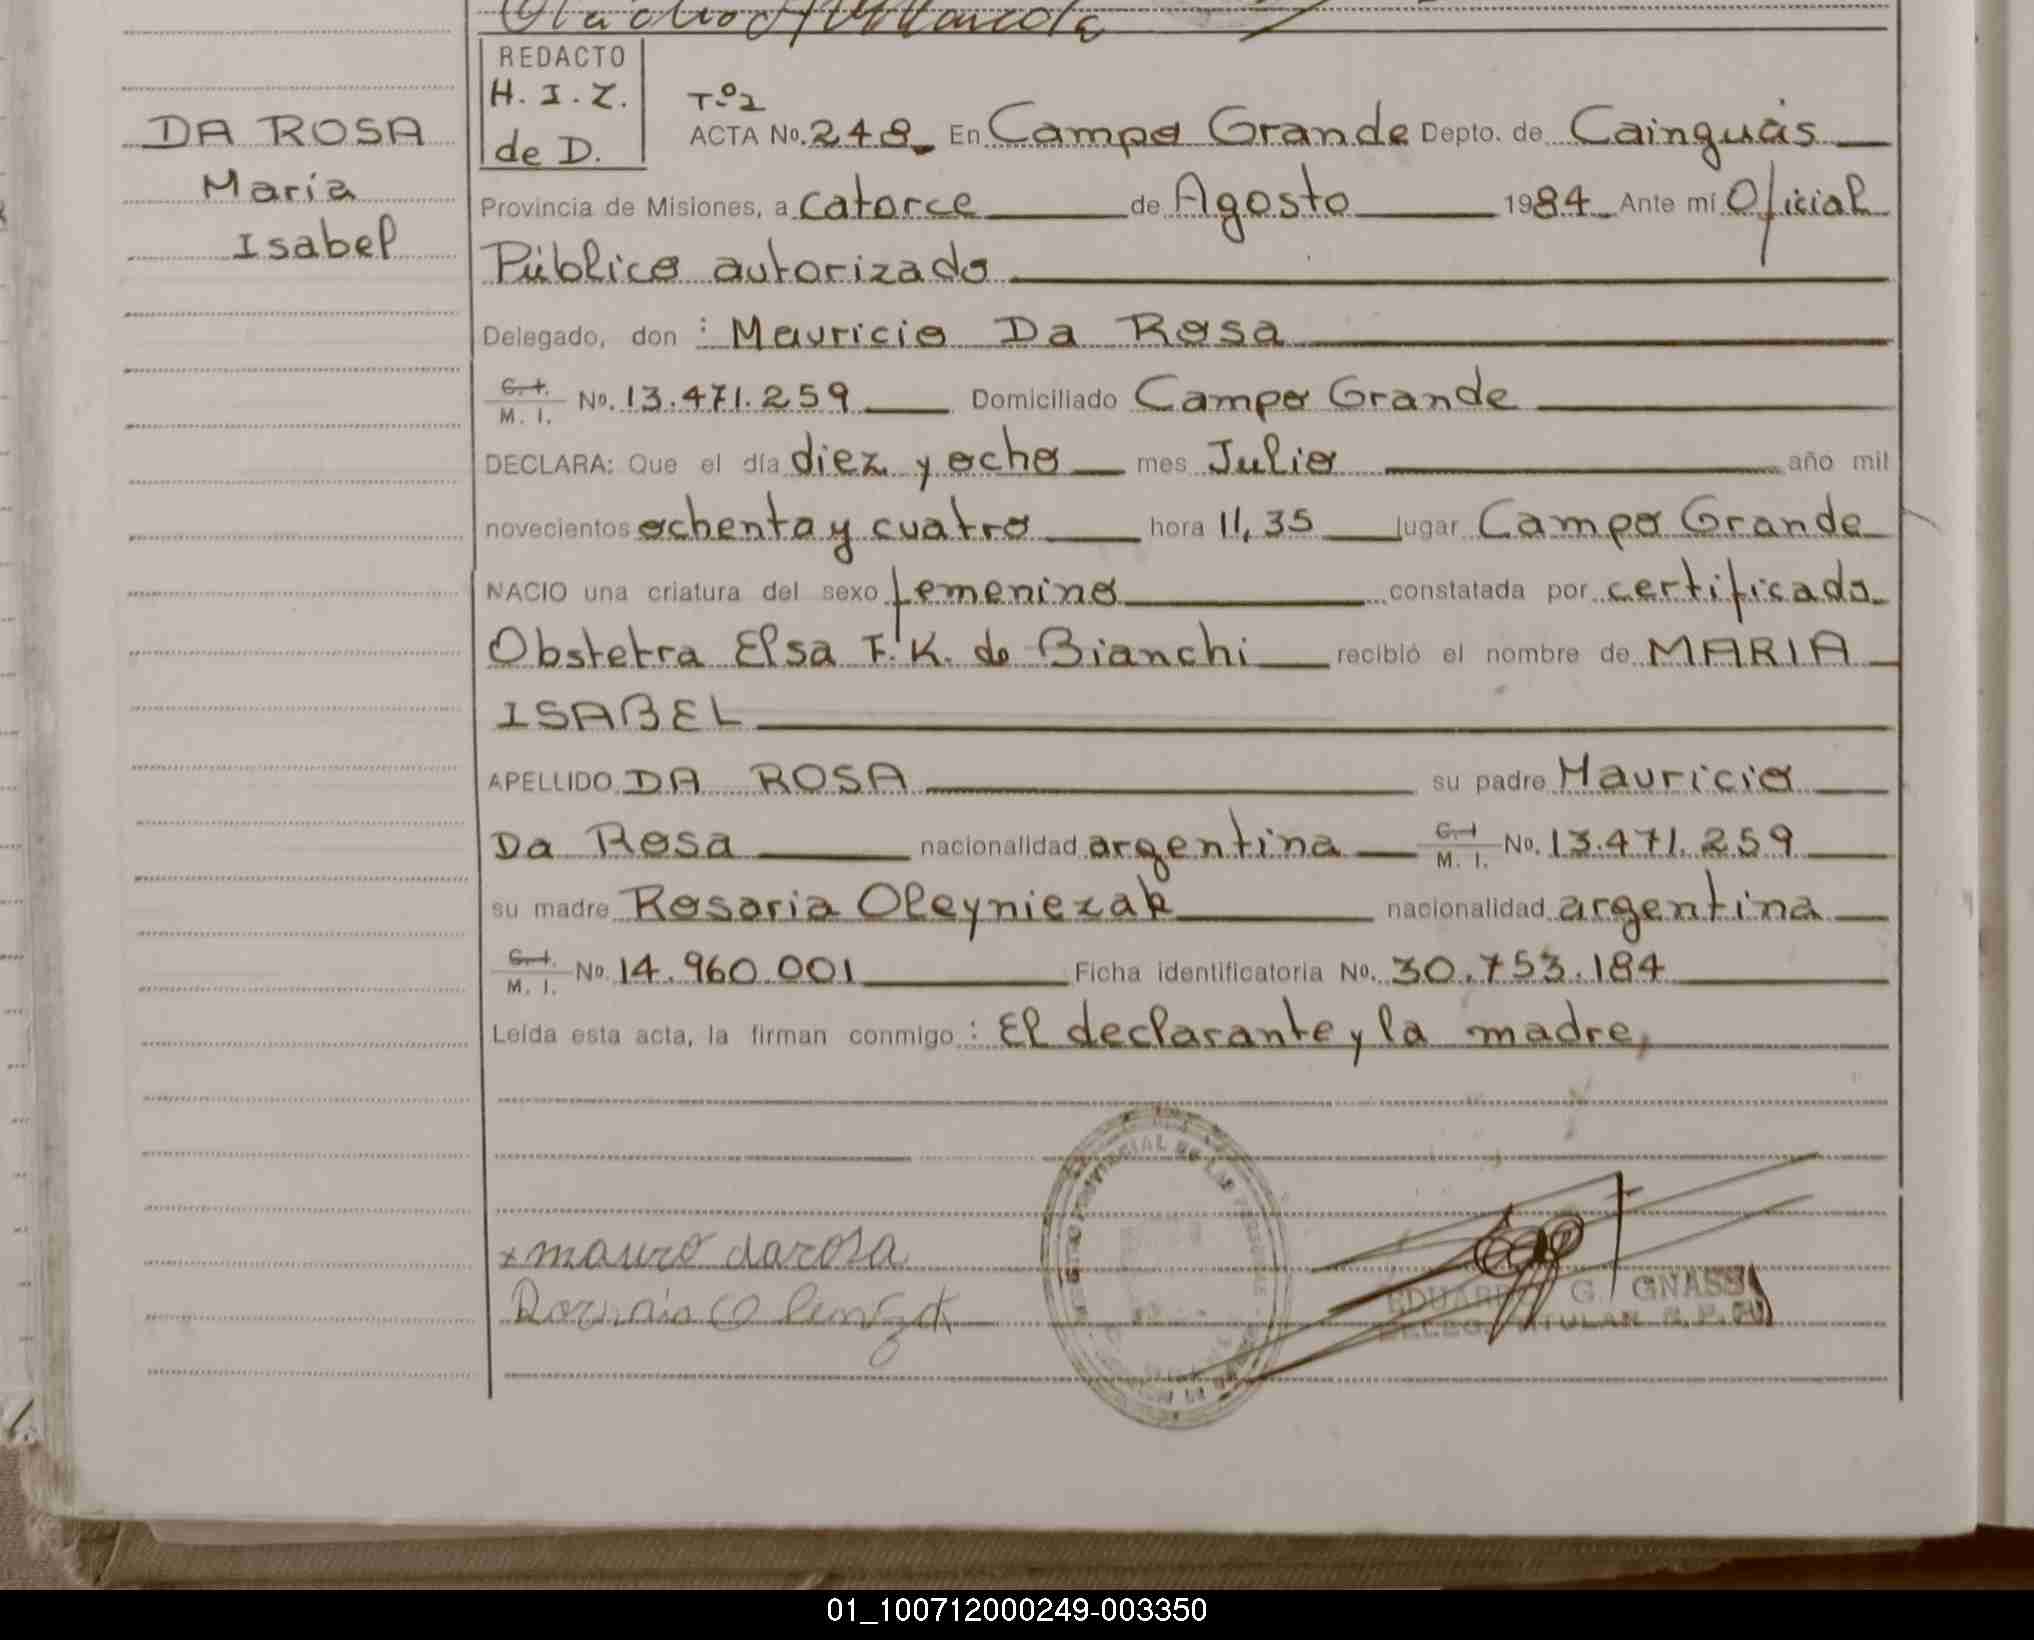 REDACTO
H. I. Z.
de D.
DA ROSA
Maria
Isabel
Tº2
ACTA Nº. 248 En Campo Grande Depto. de Cainguás
Provincia de Misiones, a catorce de Agosto 1984 Ante mí Oficial
Público autorizado
Delegado, don : Mauricio Da Rosa
C. I. M. I. Nº. 13.471.259 Domiciliado Campo Grande
DECLARA: Que el día diez y ocho mes Julio año mil
novecientos ochenta y cuatro hora 11,35 lugar Campo Grande
NACIO una criatura del sexo femenino constatada por certificado
Obstetra Elsa F. K. de Bianchi recibió el nombre de MARIA
ISABEL
APELLIDO DA ROSA su padre Mauricio
Da Rosa nacionalidad argentina C. I. M. I. Nº. 13.471.259
su madre Rosaria Oleyniezak nacionalidad argentina
C. I. M. I. Nº. 14.960.001 Ficha identificatoria Nº. 30.753.184
Leída esta acta, la firman conmigo : El declarante y la madre,
x mauro darosa
EDUARDO G. GNASS
01_100712000249-003350